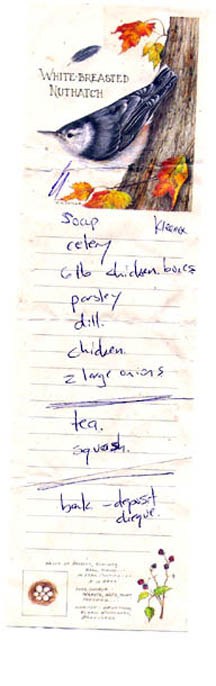 WHITE-BREASTED
NUTHATCH
Soup Kleenex
celery
6 lb chicken bones
parsley
dill.
chicken.
2 large onions
tea.
squash.
bank - deposit
cheque.